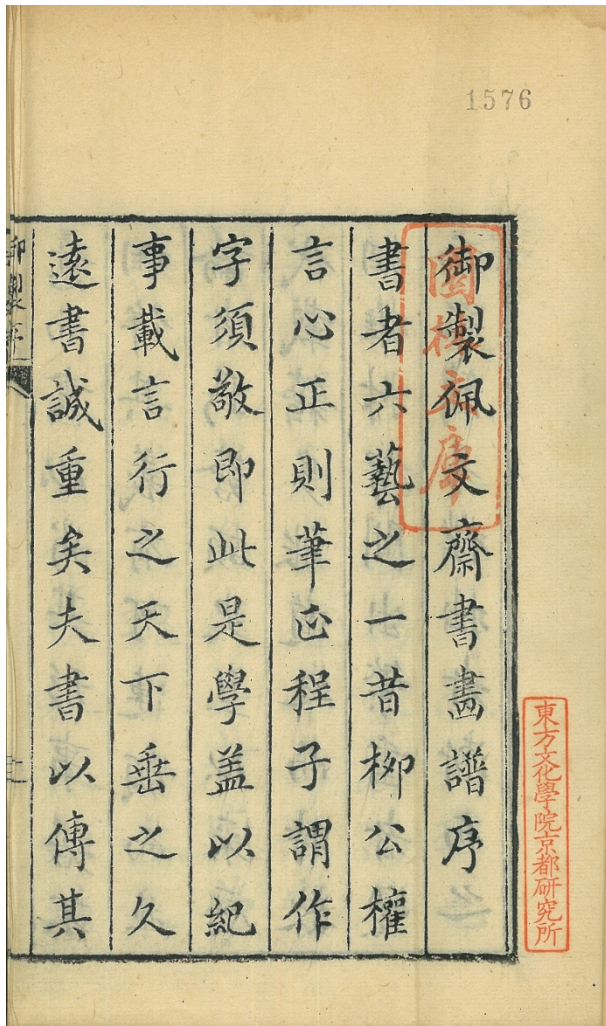 1576
御製佩文齋書畵譜序
書者六藝之一昔柳公權
言心正則筆正程子謂作
字須敬即此是學盖以紀
事載言行之天下垂之久
遠書誠重矣夫書以傳其
御製序
一
東方文化學院京都研究所